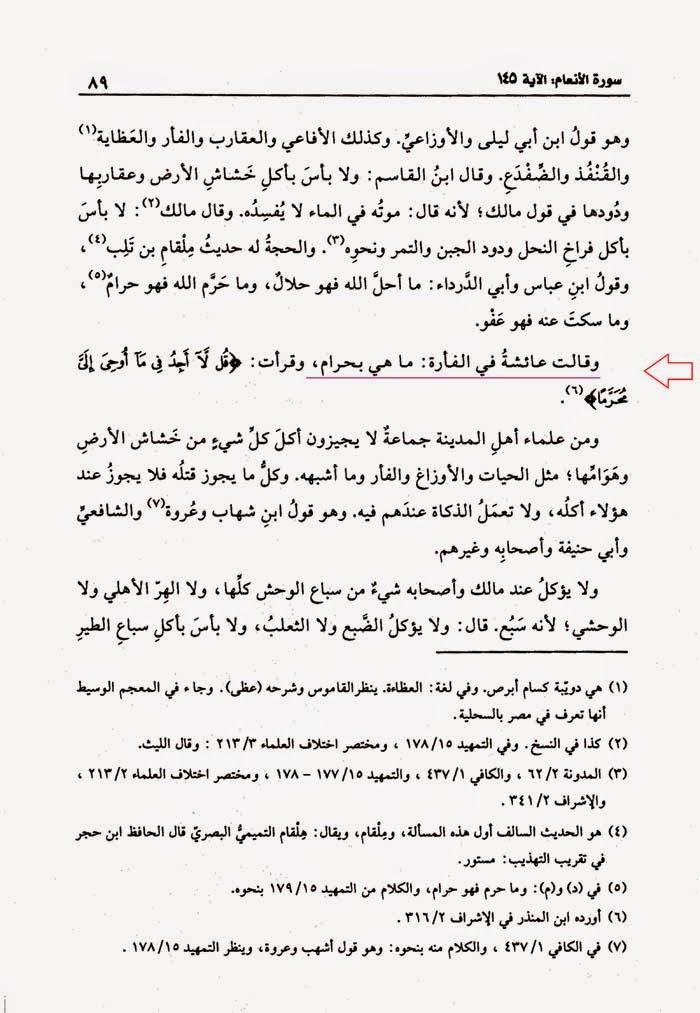 سورة الأنعام: الآية ١٤٥
٨٩
وهو قولُ ابن أبي ليلى والأوزاعيِّ. وكذلك الأفاعي والعقارب والفأر والعَظاية(١)
والقُنْفُذ والضِّفْدَعِ. وقال ابنُ القاسم: ولا بأسَ بأكلِ خَشاشِ الأرض وعقاربِها
ودُودها في قول مالك؛ لأنه قال: موتُه في الماء لا يُفسِدُه. وقال مالك(٢): لا بأسَ
بأكل فراخِ النحل ودود الجبن والتمر ونحوِه(٣). والحجةُ له حديثُ مِلْقامِ بن تَلِب(٤)،
وقولُ ابنِ عباس وأبي الدَّرداء: ما أحلَّ الله فهو حلالٌ، وما حَرَّم الله فهو حرامٌ(٥)،
وما سكتَ عنه فهو عَفْو.
وقالت عائشةُ في الفأرة: ما هي بحرام، وقرأت: ﴿قُل لَّآ أَجِدُ فِى مَآ أُوحِىَ إِلَىَّ
مُحَرَّمًا﴾(٦).
ومن علماء أهلِ المدينة جماعةٌ لا يجيزون أكلَ كلِّ شيءٍ من خَشاش الأرضِ
وهَوَامِّها؛ مثل الحيات والأوزاغ والفأر وما أشبهه. وكلُّ ما يجوز قتلُه فلا يجوزُ عند
هؤلاء أكلُه، ولا تعمَلُ الذكاة عندَهم فيه. وهو قولُ ابنِ شهاب وعُروة(٧) والشافعيِّ
وأبي حنيفة وأصحابِه وغيرهم.
ولا يؤكلُ عند مالك وأصحابه شيءٌ من سباع الوحش كلِّها، ولا الهِرّ الأهلي ولا
الوحشي؛ لأنه سَبُع. قال: ولا يؤكلُ الضَّبع ولا الثعلبُ، ولا بأسَ بأكلِ سباعِ الطيرِ
(١) هي دويّبة كسام أبرص. وفي لغة: العظاءة. ينظرالقاموس وشرحه (عظى). وجاء في المعجم الوسيط
أنها تعرف في مصر بالسحلية.
(٢) كذا في النسخ. وفي التمهيد ١٧٨/١٥ ، ومختصر اختلاف العلماء ٢١٣/٣ : وقال الليث.
(٣) المدونة ٦٢/٢ ، والكافي ٤٣٧/١ ، والتمهيد ١٧٧/١٥ – ١٧٨ ، ومختصر اختلاف العلماء ٢١٣/٢ ،
والإشراف ٣٤١/٢ .
(٤) هو الحديث السالف أول هذه المسألة، ومِلْقام، ويقال: هِلْقام التميميُّ البصريّ قال الحافظ ابن حجر
في تقريب التهذيب: مستور.
(٥) في (د) و(م): وما حرم فهو حرام، والكلام من التمهيد ١٧٩/١٥ بنحوه.
(٦) أورده ابن المنذر في الإشراف ٣١٦/٢ .
(٧) في الكافي ٤٣٧/١ ، والكلام منه بنحوه: وهو قول أشهب وعروة، وينظر التمهيد ١٧٨/١٥ .